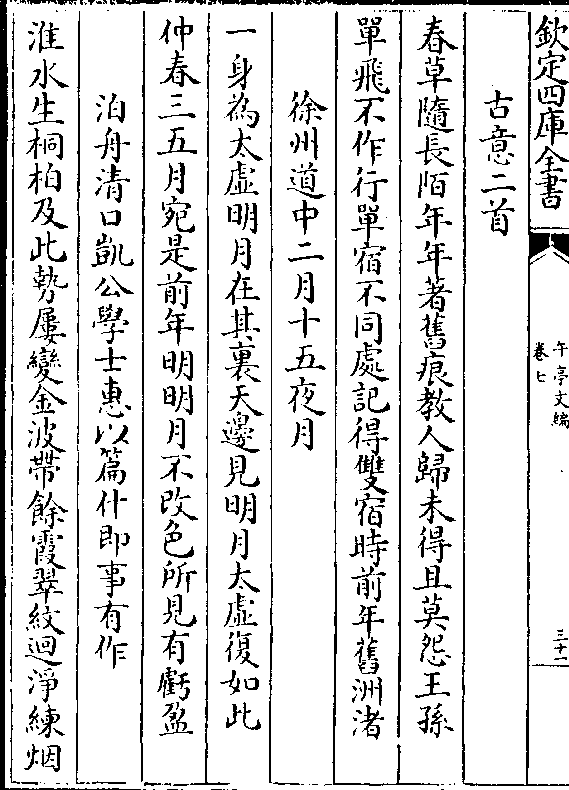 欽定四庫全書
午亭文編
卷七
三十一
古意二首
春草隨長陌年年著舊痕教人歸未得且莫怨王孫
單飛不作行單宿不同處記得雙宿時前年舊洲渚
徐州道中二月十五夜月
一身為太虛明月在其裏天邊見明月太虛復如此
仲春三五月宛是前年明明月不改色所見有虧盈
泊舟清口凱公學士惠以篇什即事有作
淮水生桐柏及此勢屢變金波帶餘霞翠紋迴淨練烟